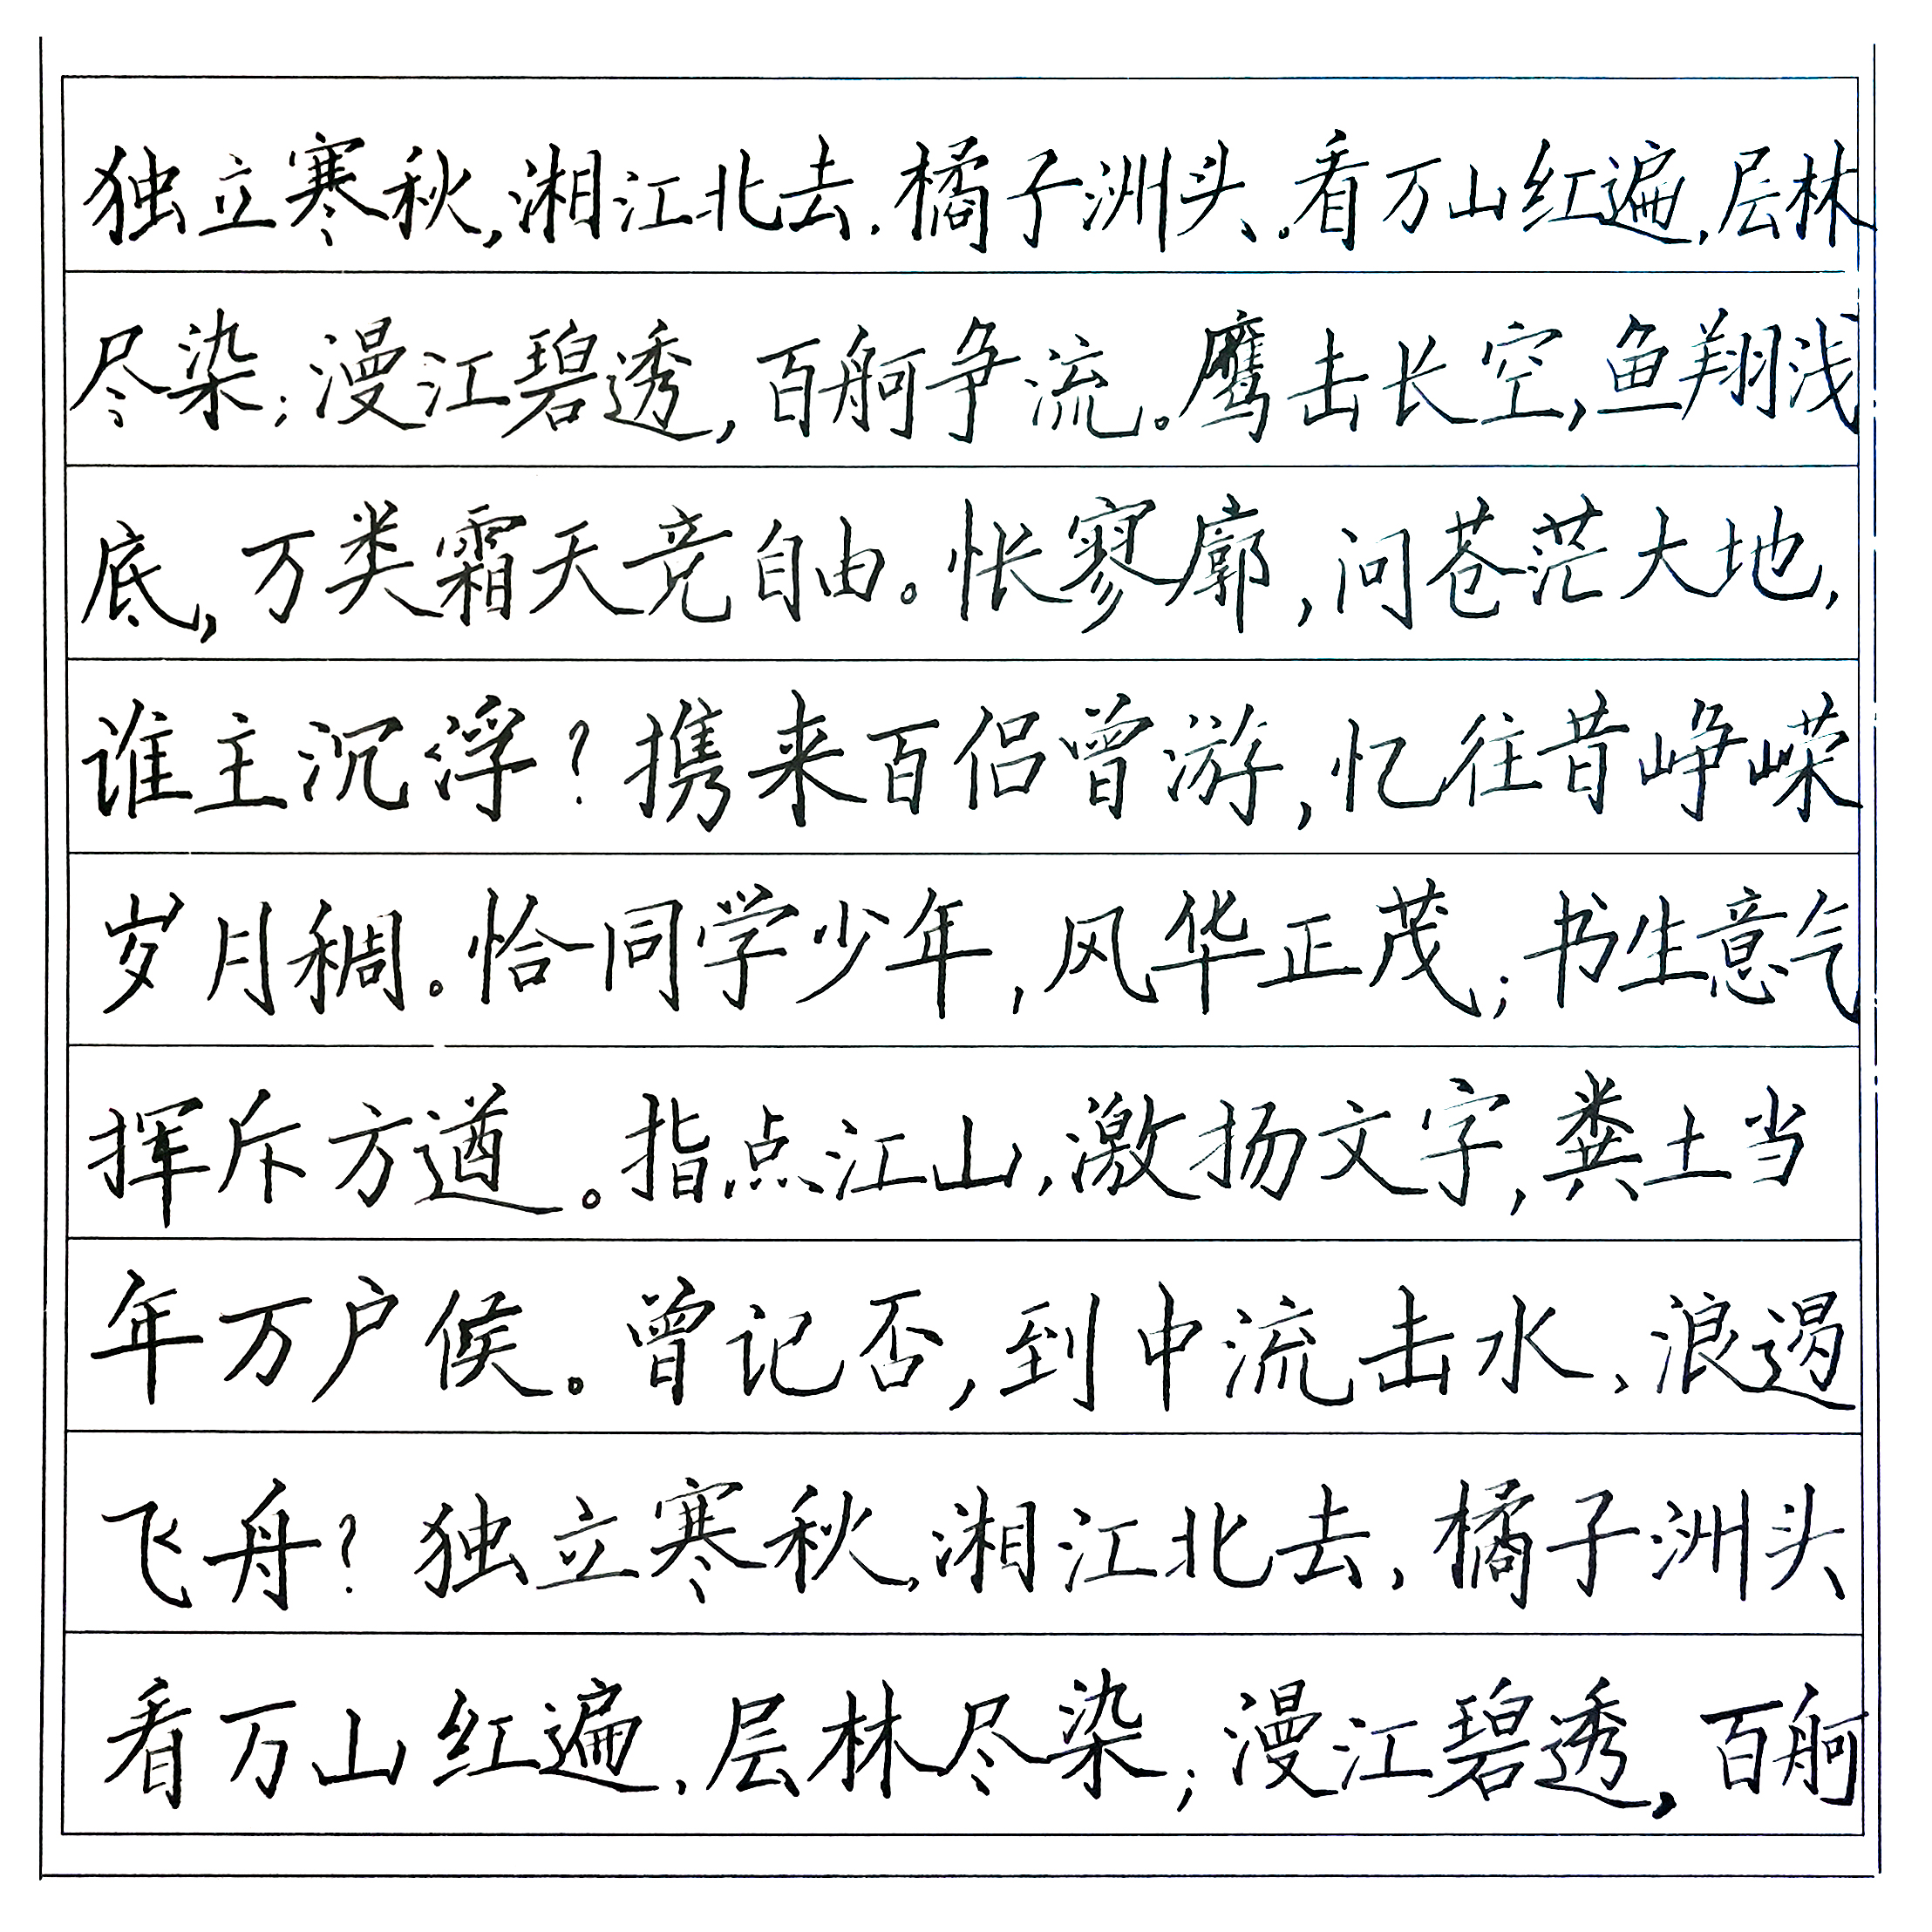 独立寒秋,湘江北去,橘子洲头。看万山红遍,层林
尽染;漫江碧透,百舸争流。鹰击长空,鱼翔浅
底,万类霜天竞自由。怅寥廓,问苍茫大地,
谁主沉浮?携来百侣曾游,忆往昔峥嵘
岁月稠。恰同学少年,风华正茂;书生意气
挥斥方遒。指点江山,激扬文字,粪土当
年万户侯。曾记否,到中流击水,浪遏
飞舟?独立寒秋,湘江北去,橘子洲头
看万山红遍,层林尽染;漫江碧透,百舸